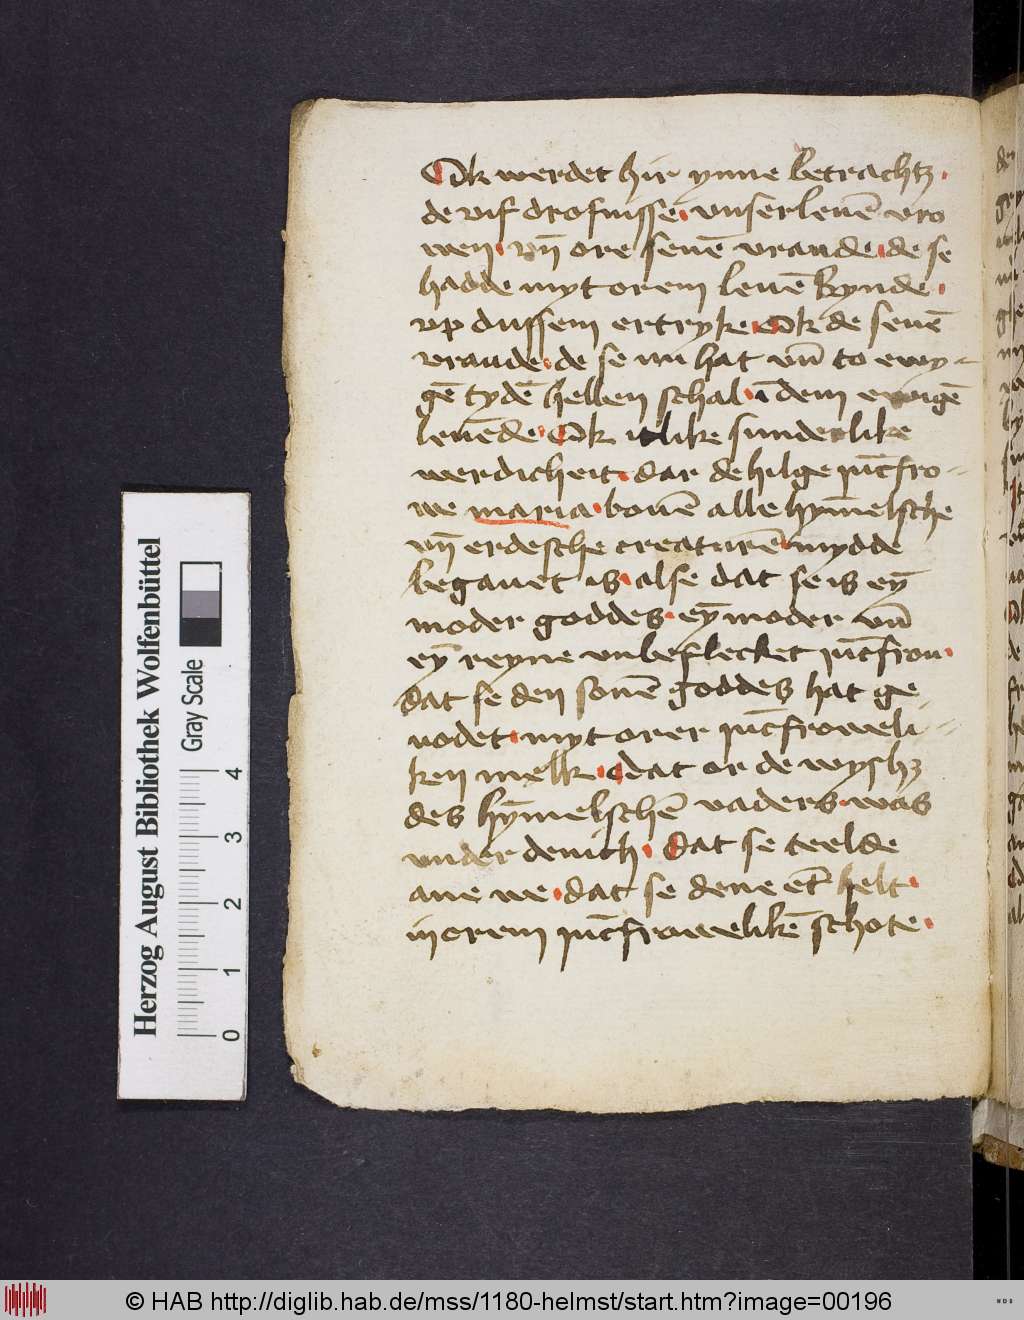 Ok werdet hir ynne betrachtꝫ.
de vif drofnisse. vnser leuē vro
wen. vn̄ ore seuē vraude. de se
hadde myt orem leuē kynde.
vp dussem ertryke. Ok de seuē
vraude. de se nu hat vn̄ to ewy-
gē tydē hebben schal. ī dem ewigē
leuēde. Ok itlike sunderlike
werdicheit. dar de hilge jūcfro-
we maria. bouē alle hȳmelsche
vn̄ erdesche creaturē. mydde
begauet is. alse dat se is eȳ
moder goddes. eȳ moder vn̄
eȳ reyne vnbeflecket jūcfrou.
dat se den sonē goddes hat ge-
uodet. myt orer jūcfroweli-
ken melk. Dat or de wyshꝫ
des hȳmelschē vaders. was
vnder denich. Dat se teelde
ane we. dat se dene et̄ helt.
in orem jūcfrowelikē schote.
Herzog August Bibliothek Wolfenbüttel
Gray Scale
0 1 2 3 4
© HAB http://diglib.hab.de/mss/1180-helmst/start.htm?image=00196